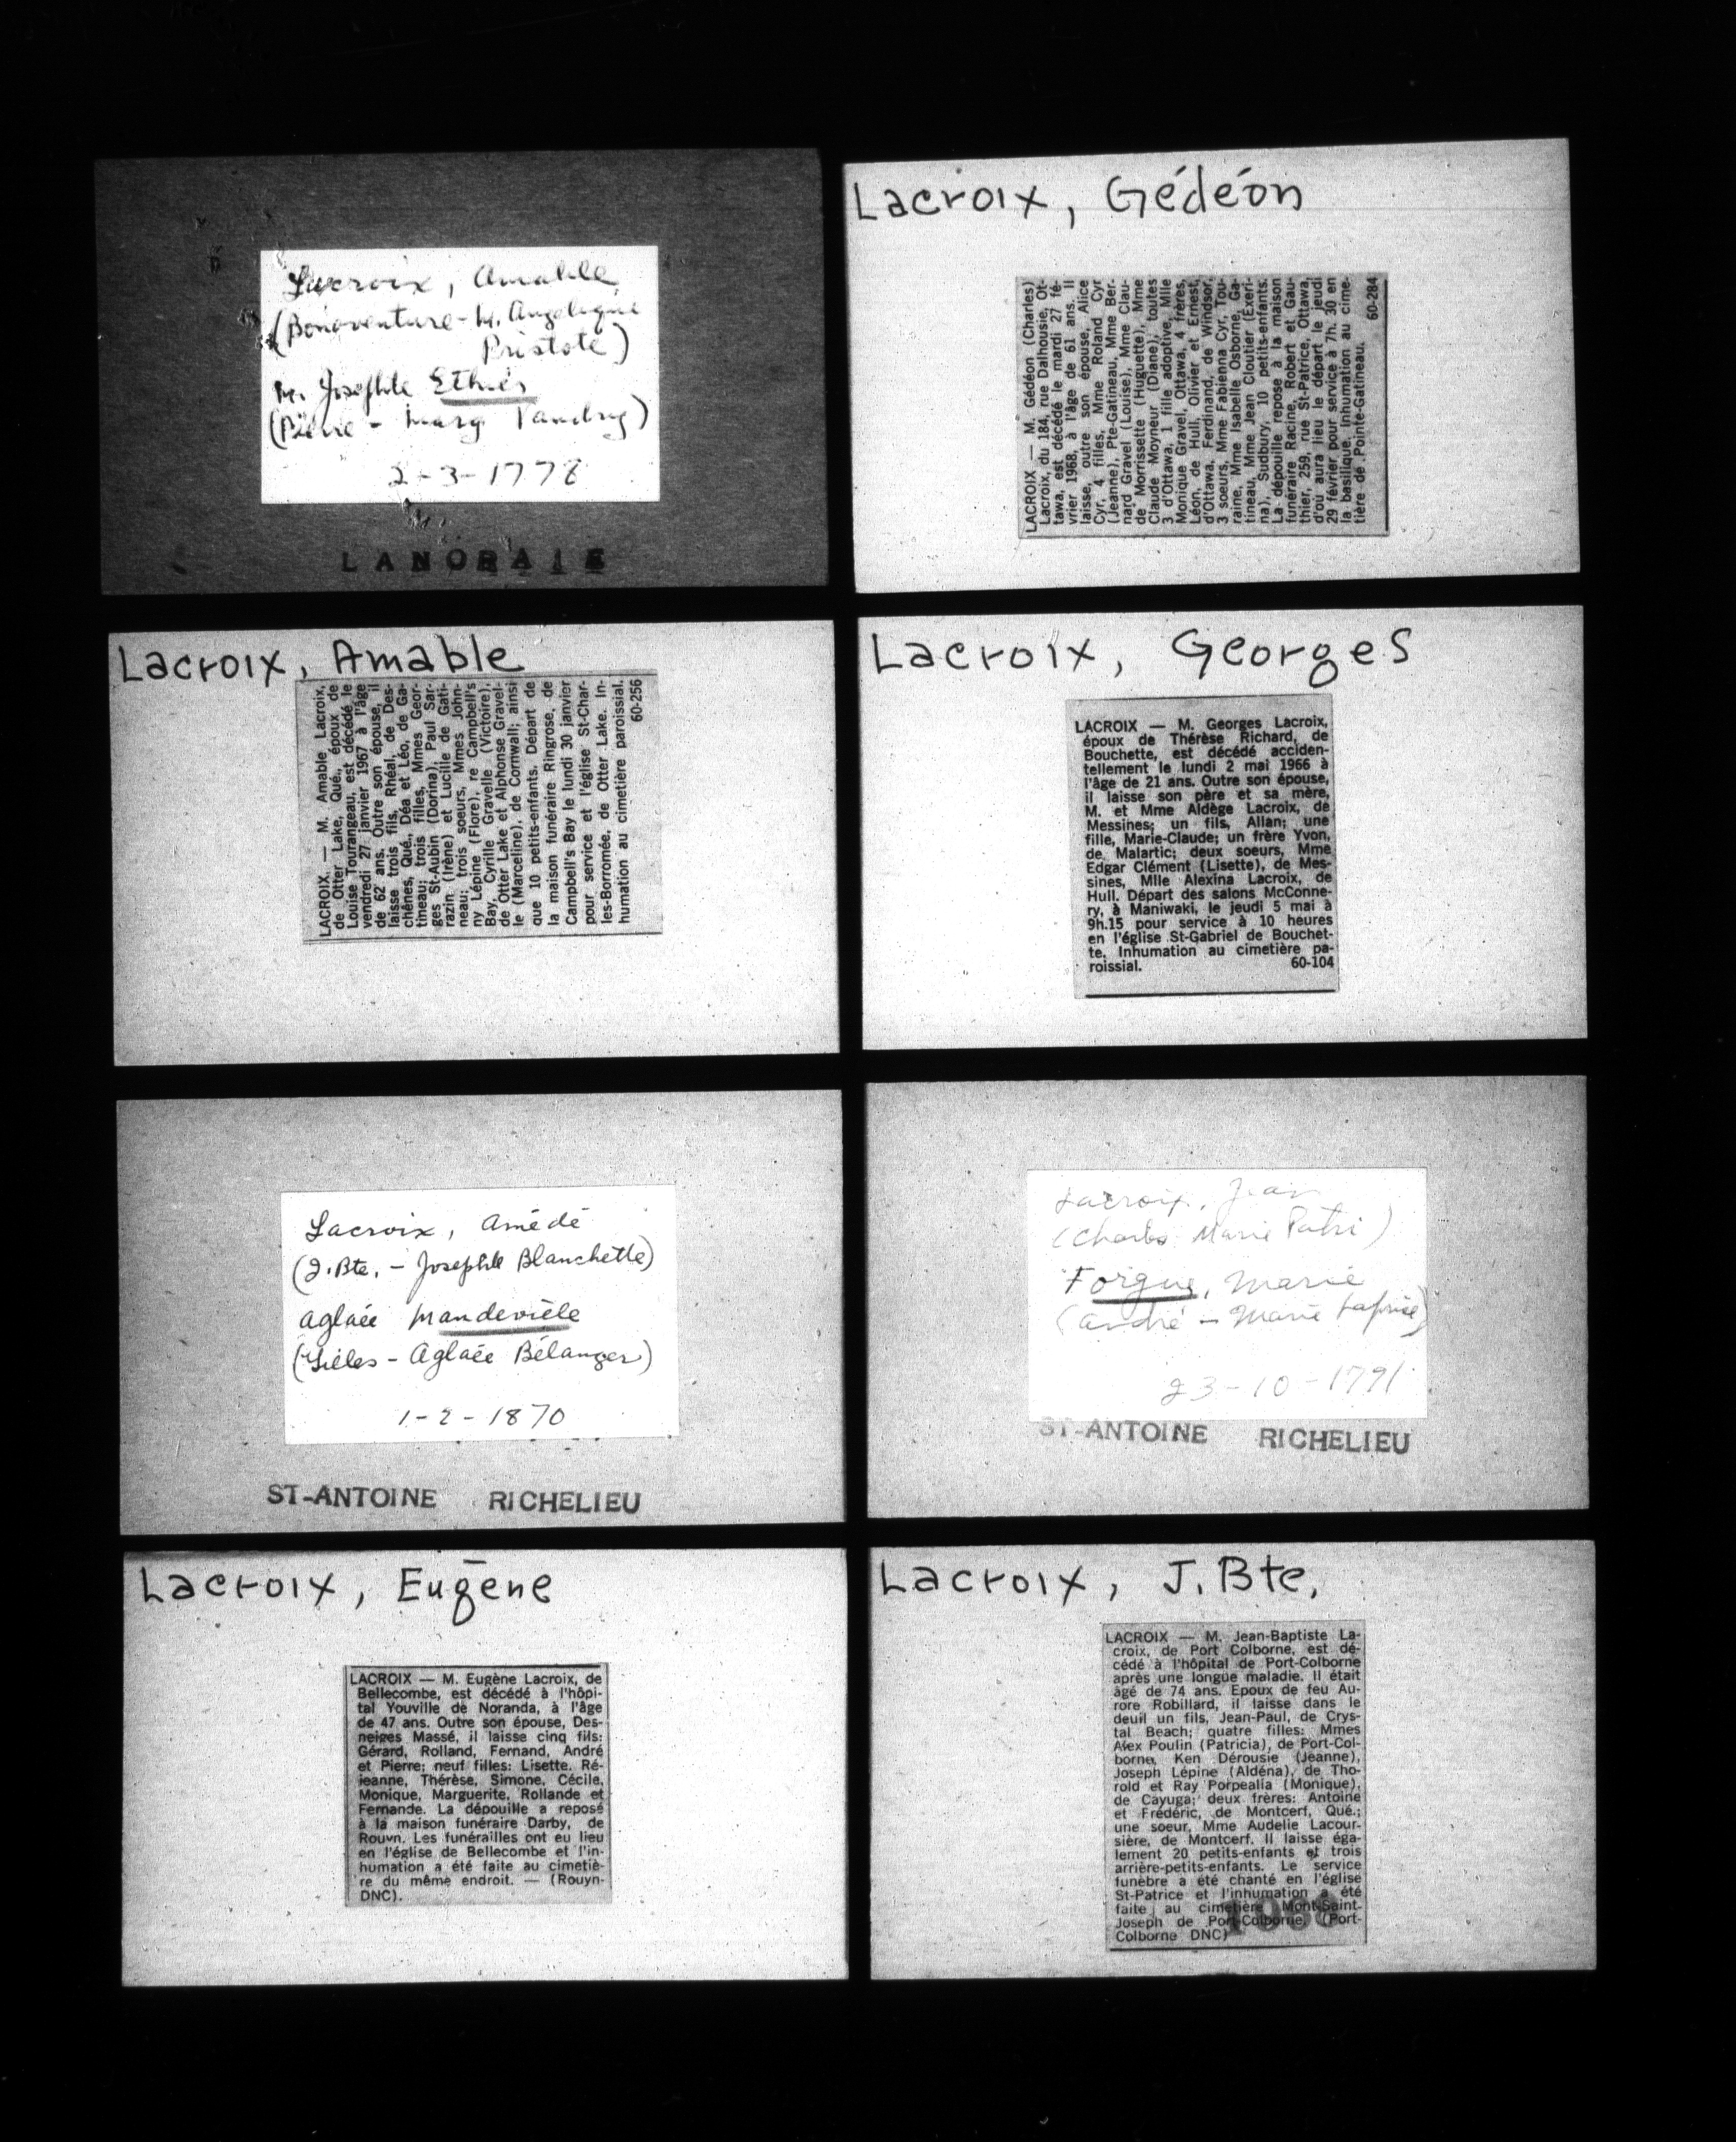 Lacroix, Amable
(Bonaventure - M. Angelique
Pristote)
m. Josephte Ethier
(Pierre - Marg. Vandry)
2-3-1778
LANORAIE
Lacroix, Amable
LACROIX — M. Amable Lacroix,
de Otter Lake, Qué., époux de
Louise Tourangeau, est décédé le
vendredi 27 janvier 1967 à l'âge
de 62 ans. Outre son épouse, il
laisse trois fils, Rhéal, de Des-
chênes, Qué., Déa et Léo, de Ga-
tineau; trois filles, Mmes Geor-
ges St-Aubin (Dorina), Paul Sar-
razin (Irène) et Lucille de Gati-
neau; trois soeurs, Mmes John-
ny Lépine (Flore), re Campbell's
Bay, Cyrille Gravelle (Victoire),
de Otter Lake et Alphonse Gravel-
le (Marceline), de Cornwall; ainsi
que 10 petits-enfants. Départ de
la maison funéraire Ringrose, de
Campbell's Bay le lundi 30 janvier
pour service et l'église St-Char-
les-Borromée, de Otter Lake. In-
humation au cimetière paroissial.
60-256
Lacroix, Amédé
(J.Bte. - Josephte Blanchette)
Aglaée Mandeville
(Gilles - Aglaée Bélanger)
1-2-1870
ST-ANTOINE RICHELIEU
Lacroix, Eugène
LACROIX — M. Eugène Lacroix, de
Bellecombe, est décédé à l'hôpi-
tal Youville de Noranda, à l'âge
de 47 ans. Outre son épouse, Des-
neiges Massé, il laisse cinq fils:
Gérard, Rolland, Fernand, André
et Pierre; neuf filles: Lisette, Ré-
jeanne, Thérèse, Simone, Cécile,
Monique, Marguerite, Rollande et
Fernande. La dépouille a reposé
à la maison funéraire Darby, de
Rouyn. Les funérailles ont eu lieu
en l'église de Bellecombe et l'in-
humation a été faite au cimetiè-
re du même endroit. — (Rouyn-
DNC).
Lacroix, Gédéon
LACROIX — M. Gédéon (Charles)
Lacroix, du 184, rue Dalhousie, Ot-
tawa, est décédé le mardi 27 fé-
vrier 1968, à l'âge de 61 ans. Il
laisse, outre son épouse, Alice
Cyr, 4 filles, Mme Roland Cyr
(Jeanne), Pte-Gatineau, Mme Ber-
nard Gravel (Louise), Mme Clau-
de Morrissette (Huguette), Mme
Claude Moyneur (Diane), toutes
3 d'Ottawa, 1 fille adoptive, Mlle
Monique Gravel, Ottawa, 4 frères,
Léon, de Hull, Olivier et Ernest,
d'Ottawa, Ferdinand, de Windsor,
3 soeurs, Mme Fabienna Cyr, Tou-
raine, Mme Isabelle Osborne, Ga-
tineau, Mme Jean Cloutier (Exeri-
na), Sudbury, 10 petits-enfants.
La dépouille repose à la maison
funéraire Racine, Robert et Gau-
thier, 259, rue St-Patrice, Ottawa,
d'où aura lieu le départ le jeudi
29 février pour service à 7h. 30 en
la basilique. Inhumation au cime-
tière de Pointe-Gatineau.
60-284
Lacroix, Georges
LACROIX — M. Georges Lacroix,
époux de Thérèse Richard, de
Bouchette, est décédé acciden-
tellement le lundi 2 mai 1966 à
l'âge de 21 ans. Outre son épouse,
il laisse son père et sa mère,
M. et Mme Aldège Lacroix, de
Messines; un fils, Allan; une
fille, Marie-Claude; un frère Yvon,
de Malartic; deux soeurs, Mme
Edgar Clément (Lisette), de Mes-
sines, Mlle Alexina Lacroix, de
Hull. Départ des salons McConne-
ry, à Maniwaki, le jeudi 5 mai à
9h.15 pour service à 10 heures
en l'église St-Gabriel de Bouchet-
te. Inhumation au cimetière pa-
roissial. 60-104
Lacroix, Jean
(Charles Marie Patri)
Forgue, Marie
(André - Marie Laprise)
23-10-1791
ST-ANTOINE RICHELIEU
Lacroix, J.Bte,
LACROIX — M. Jean-Baptiste La-
croix, de Port Colborne, est dé-
cédé à l'hôpital de Port-Colborne
après une longue maladie. Il était
âgé de 74 ans. Epoux de feu Au-
rore Robillard, il laisse dans le
deuil un fils, Jean-Paul, de Crys-
tal Beach; quatre filles: Mmes
Alex Poulin (Patricia), de Port-Col-
borne, Ken Dérousie (Jeanne),
Joseph Lépine (Aldéna), de Tho-
rold et Ray Porpealia (Monique),
de Cayuga; deux frères: Antoine
et Frédéric, de Montcerf, Qué.;
une soeur, Mme Audelie Lacour-
sière, de Montcerf. Il laisse éga-
lement 20 petits-enfants et trois
arrière-petits-enfants. Le service
funèbre a été chanté en l'église
St-Patrice et l'inhumation a été
faite au cimetière Mont-Saint-
Joseph de Port-Colborne. (Port-
Colborne DNC)